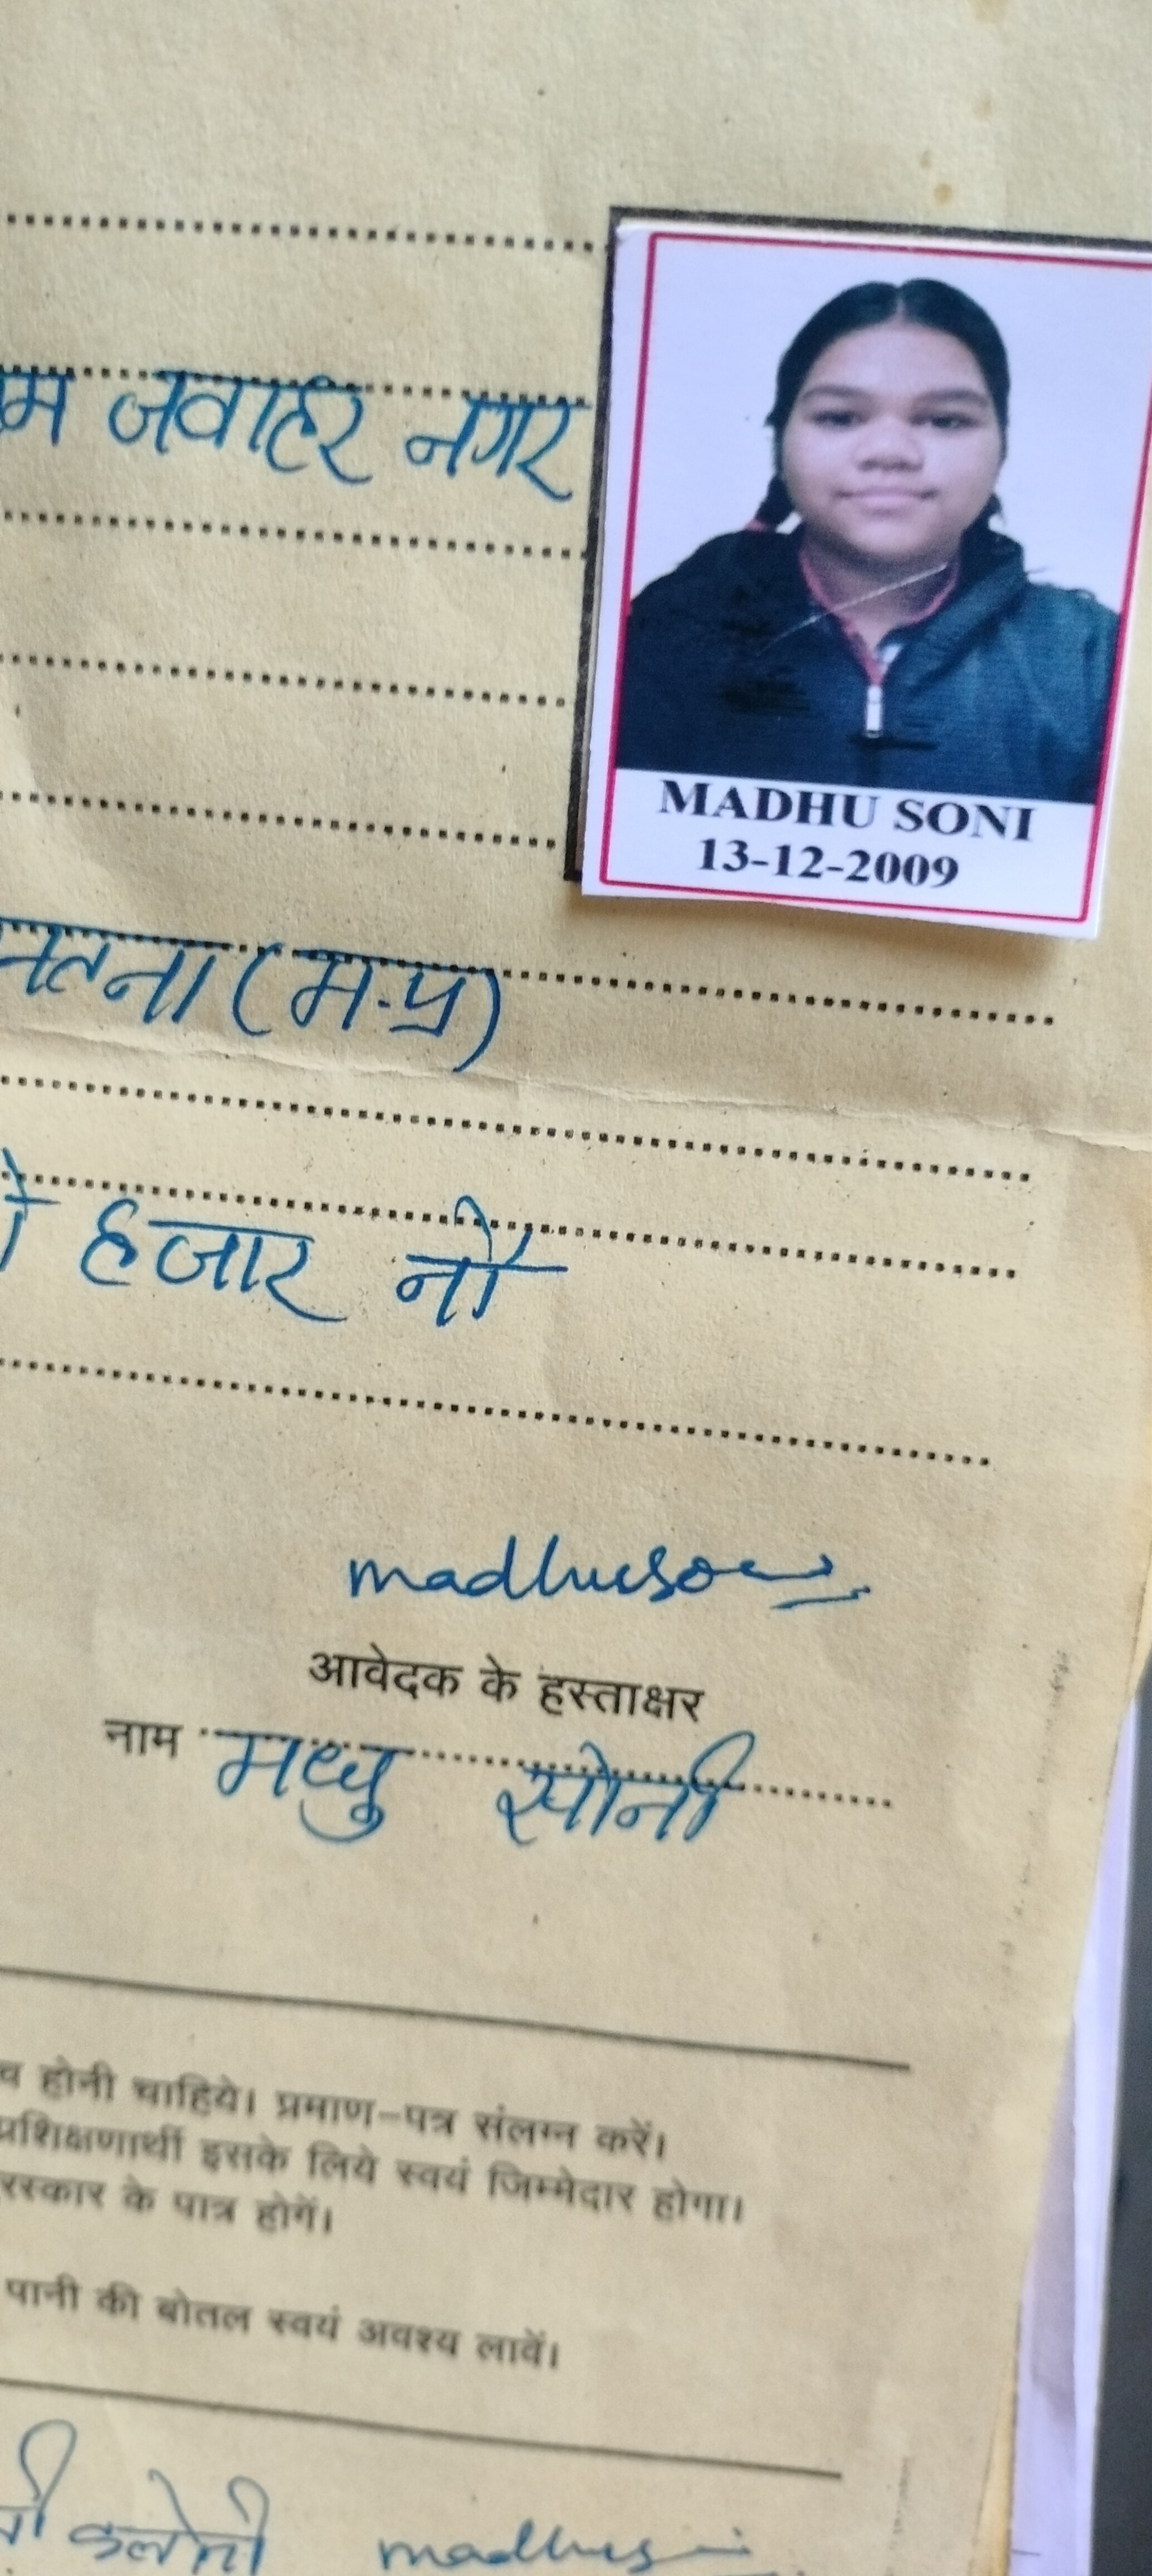 जवाहर नगर
MADHU SONI
13-12-2009
सतना (म.प्र)
हजार नौ
madhusoni
आवेदक के हस्ताक्षर
नाम मधु सोनी
होनी चाहिये। प्रमाण-पत्र संलग्न करें।
प्रशिक्षणार्थी इसके लिये स्वयं जिम्मेदार होगा।
के पात्र होगें।
पानी की बोतल स्वयं अवश्य लावें।